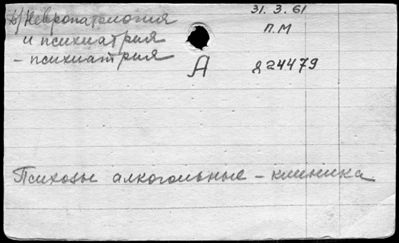 в) Невропатология
и психиатрия
- психиатрия
31. 3. 61
П.М
А
д 24479
Психозы алкогольные - клиника